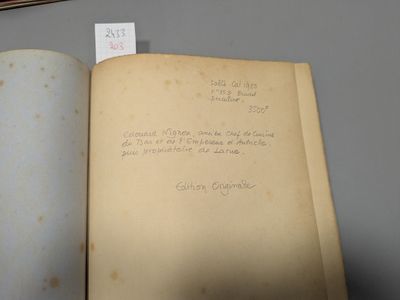 2433
203
3500F
Edouard Nignon, ancien Chef de Cuisine
du Tsar et de l'Empereur d'Autriche
puis propriétaire de Larue.
Edition Originale